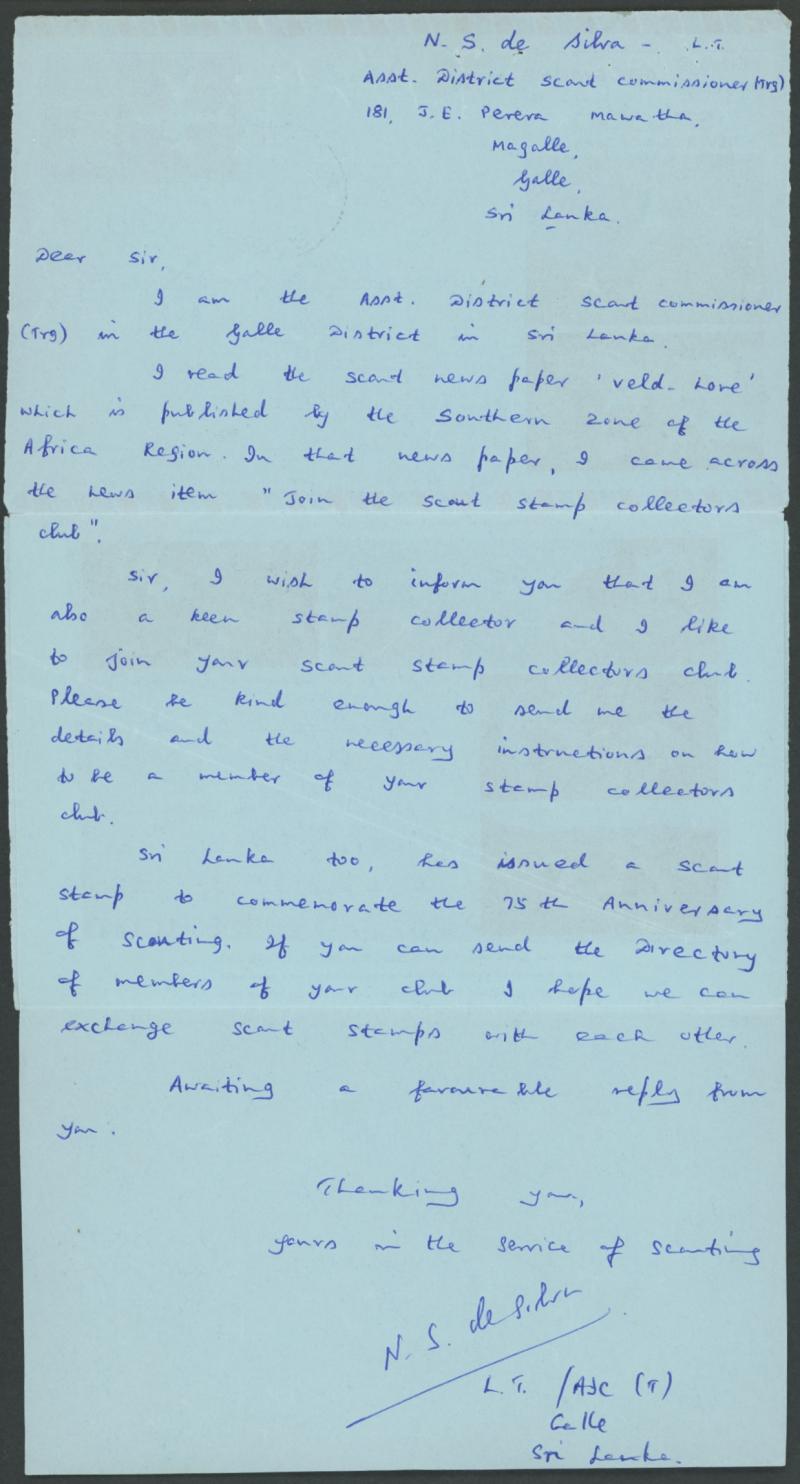 N. S. de Silva - L.T.
Asst. District Scout Commissioner (Trg)
181, J. E. Perera Mawatha,
Magalle,
Galle,
Sri Lanka.
Dear Sir,
I am the Asst. District Scout Commissioner
(Trg) in the Galle District in Sri Lanka.
I read the scout news paper 'veld-lore'
which is published by the Southern Zone of the
Africa Region. In that news paper, I came across
the news item "Join the scout stamp collectors
club".
Sir, I wish to inform you that I am
also a keen stamp collector and I like
to join your scout stamp collectors club.
Please be kind enough to send me the
details and the necessary instructions on how
to be a member of your stamp collectors
club.
Sri Lanka too, has issued a scout
stamp to commemorate the 75th Anniversary
of Scouting. If you can send the Directory
of members of your club I hope we can
exchange scout stamps with each other.
Awaiting a favourable reply from
you.
Thanking you,
yours in the service of scouting
N. S. de Silva
L.T. /ADC (T)
Galle
Sri Lanka.